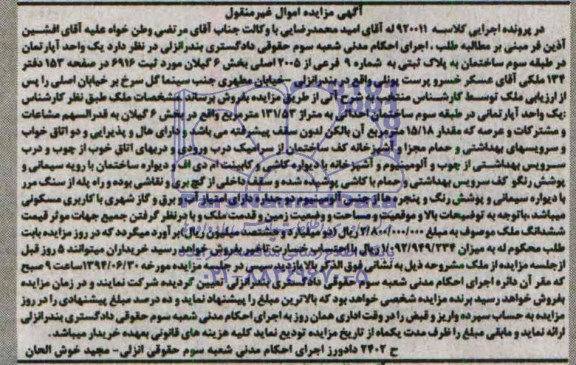 آگهی مزایده اموال غیرمنقول
در پرونده اجرایی کلاسه ۹۲۰۰۱۱ له آقای امید محمدرضایی با وکالت جناب آقای مرتضی وطن خواه علیه آقای افشین
آذین فر مبنی بر مطالبه طلب، اجرای احکام مدنی شعبه سوم حقوقی دادگستری بندرانزلی در نظر دارد یک واحد آپارتمان
در طبقه سوم ساختمان به پلاک ثبتی به شماره ۹ فرعی از ۲۰۰۵ اصلی بخش ۶ گیلان مورد ثبت ۶۹۱۶ در صفحه ۱۵۳ دفتر
۱۳۴ ملکی آقای عسکر خسرو پرست پونلی واقع در بندرانزلی -خیابان مطهری جنب سینما گل سرخ بر خیابان اصلی را پس
از ارزیابی ملک توسط کارشناس منتخب به شرح آتی از طریق مزایده بفروش برساند. مشخصات ملک طبق نظر کارشناس
:یک واحد آپارتمانی در طبقه سوم ساختمان احداثی به متراژ ۱۳۱/۵۳ مترمربع واقع در بخش ۶ گیلان به قدرالسهم مشاعات
و مشترکات و عرصه که مقدار ۱۵/۱۸ مترمربع آن بالکن لدون سقف پیشرفته می باشد و دارای هال و پذیرایی و دو اتاق خواب
و سرویسهای بهداشتی و حمام مجزا و آشپزخانه کف ساختمان از سرامیک درب ورودی و دربهای اتاق خواب از چوب و درب
سرویس بهداشتی از چوب و آلومینیوم و آشپزخانه با دیواره کاشی و کابینت ام دی اف و دیواره ساختمان با رویه سیمانی و
پوشش رنگو کف سرویس بهداشتی و حمام با کاشی پوشیده شده و سقف داخلی از گچ بری و نقاشی بوده و راه پله از سنگ مرر
با دیواره سیمانی و پوشش رنگ و پنجره ها از جنس آلومینیوم دو جداره دارای امتیاز آب و برق و گاز شهری با کاربری مسکونی
میباشد.باتوجه به توضیحات بالا و موقعیت و مساحت و وضعیت زمین و قدمت ملک و با درنظر گرفتن جمیع جهات موثر قیمت
ششدانگ ملک موصوف به مبلغ ۲/۸۰۰/۰۰۰/۰۰۰ ریال (دو میلیارد و هشتصد میلیون ریال) بر آورد میگردد که در روز مزایده بابت
طلب محکوم له به میزان ۰۹۲/۹۴۹/۲۳۴ ریال با احتساب خسارت تاخیر بفروش خواهد رسید خریداران میتوانند ۵ روز قبل
از جلسه مزایده از ملک مشروحه ذیل به نشانی فوق الذکر بازدید و سپس در جلسه مزایده مورخه ۱۳۹۴/۰۶/۳۰ ساعت ۹ صبح
که مقر آن دائره اجرای احکام مدنی شعبه سوم حقوقی دادگستری بندرانزلی تعیین گردیده شرکت نمایند و در زمان مزایده
بفروش خواهد رسید برنده مزایده شخصی خواهد بود که بالاترین مبلغ را پیشنهاد نماید و ده درصد مبلغ پیشنهادی را در روز
مزایده به حساب سپرده واریز و قبض را در وقت اداری همان روز به اجرای احکام مدنی شعبه سوم حقوقی دادگستری بندرانزلی
ارائه نماید و مابقی مبلغ را ظرف مدت یکماه از تاریخ مزایده تودیع نماید کلیه هزینه های قانونی بعهده خریدار میباشد.
ح ۲۴۰۲ دادورز اجرای احکام مدنی شعبه سوم حقوقی انزلی- مجید خوش الحان